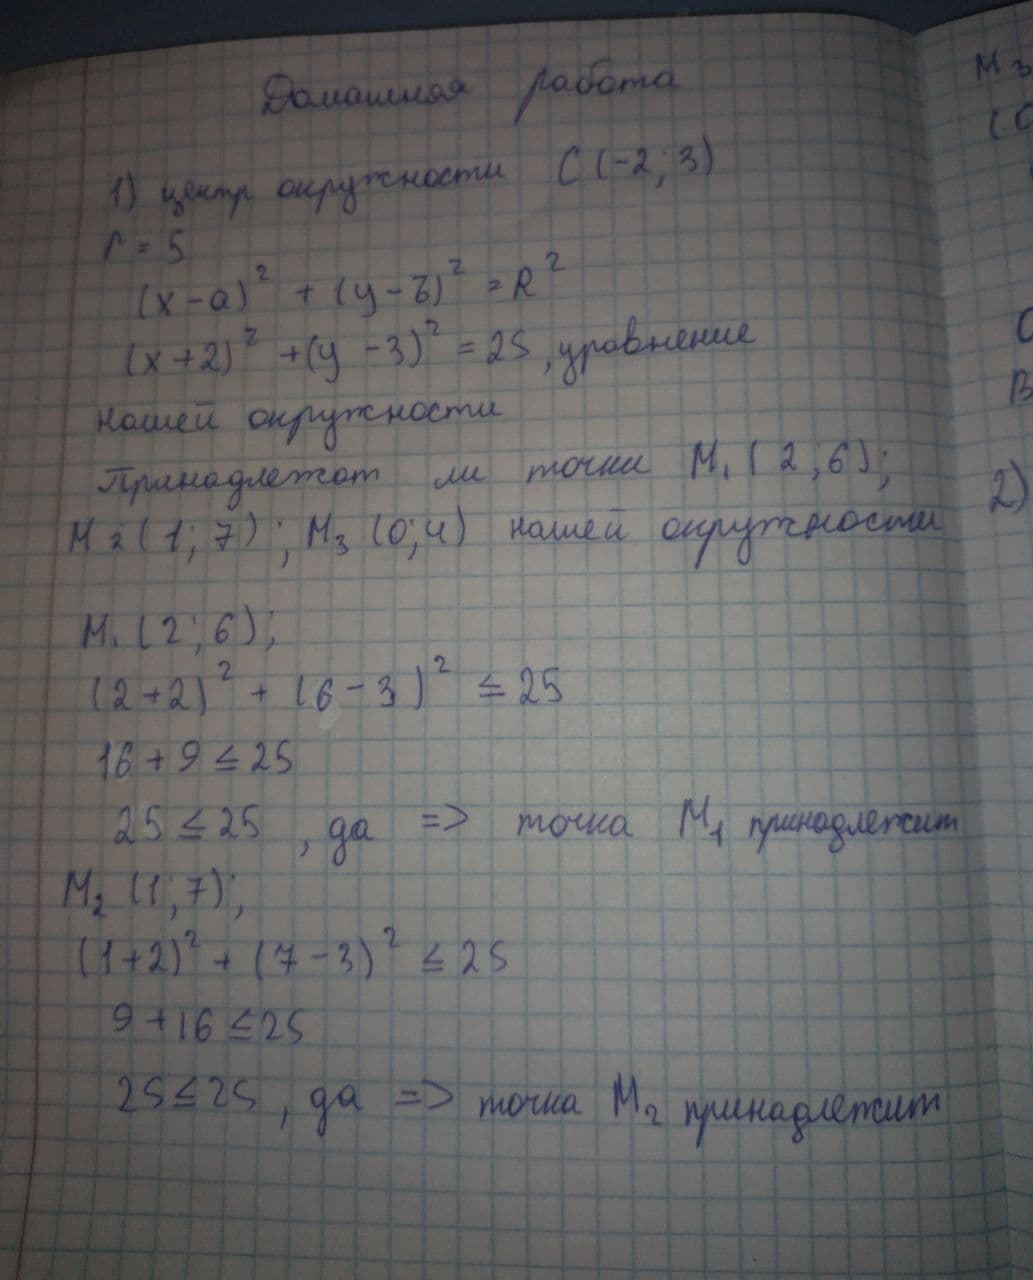 Домашняя работа
1) центр окружности C(-2; 3)
r = 5
(x-a)² + (y-в)² = R²
(x+2)² + (y-3)² = 25, уравнение
нашей окружности
Принадлежат ли точки M₁(2; 6);
M₂(1; 7); M₃(0; 4) нашей окружности
M₁(2; 6);
(2+2)² + (6-3)² ≤ 25
16 + 9 ≤ 25
25 ≤ 25, да => точка M₁ принадлежит
M₂(1; 7);
(1+2)² + (7-3)² ≤ 25
9 + 16 ≤ 25
25 ≤ 25, да => точка M₂ принадлежит
M з
2)